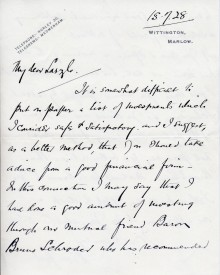 TELEPHONE: HURLEY
TELEGRAMS: MEDMENHAM
15/7/28
WITTINGTON,
MARLOW.
My dear Laszlo.
It is somewhat difficult to
put on paper a list of investments which
I consider safe & satisfactory, and I suggest,
as a better method, that you should take
advice from a good financial firm -
In this connection I may say that I
have done a good amount of investing
through our mutual friend Baron
Bruno Schroder who has recommended